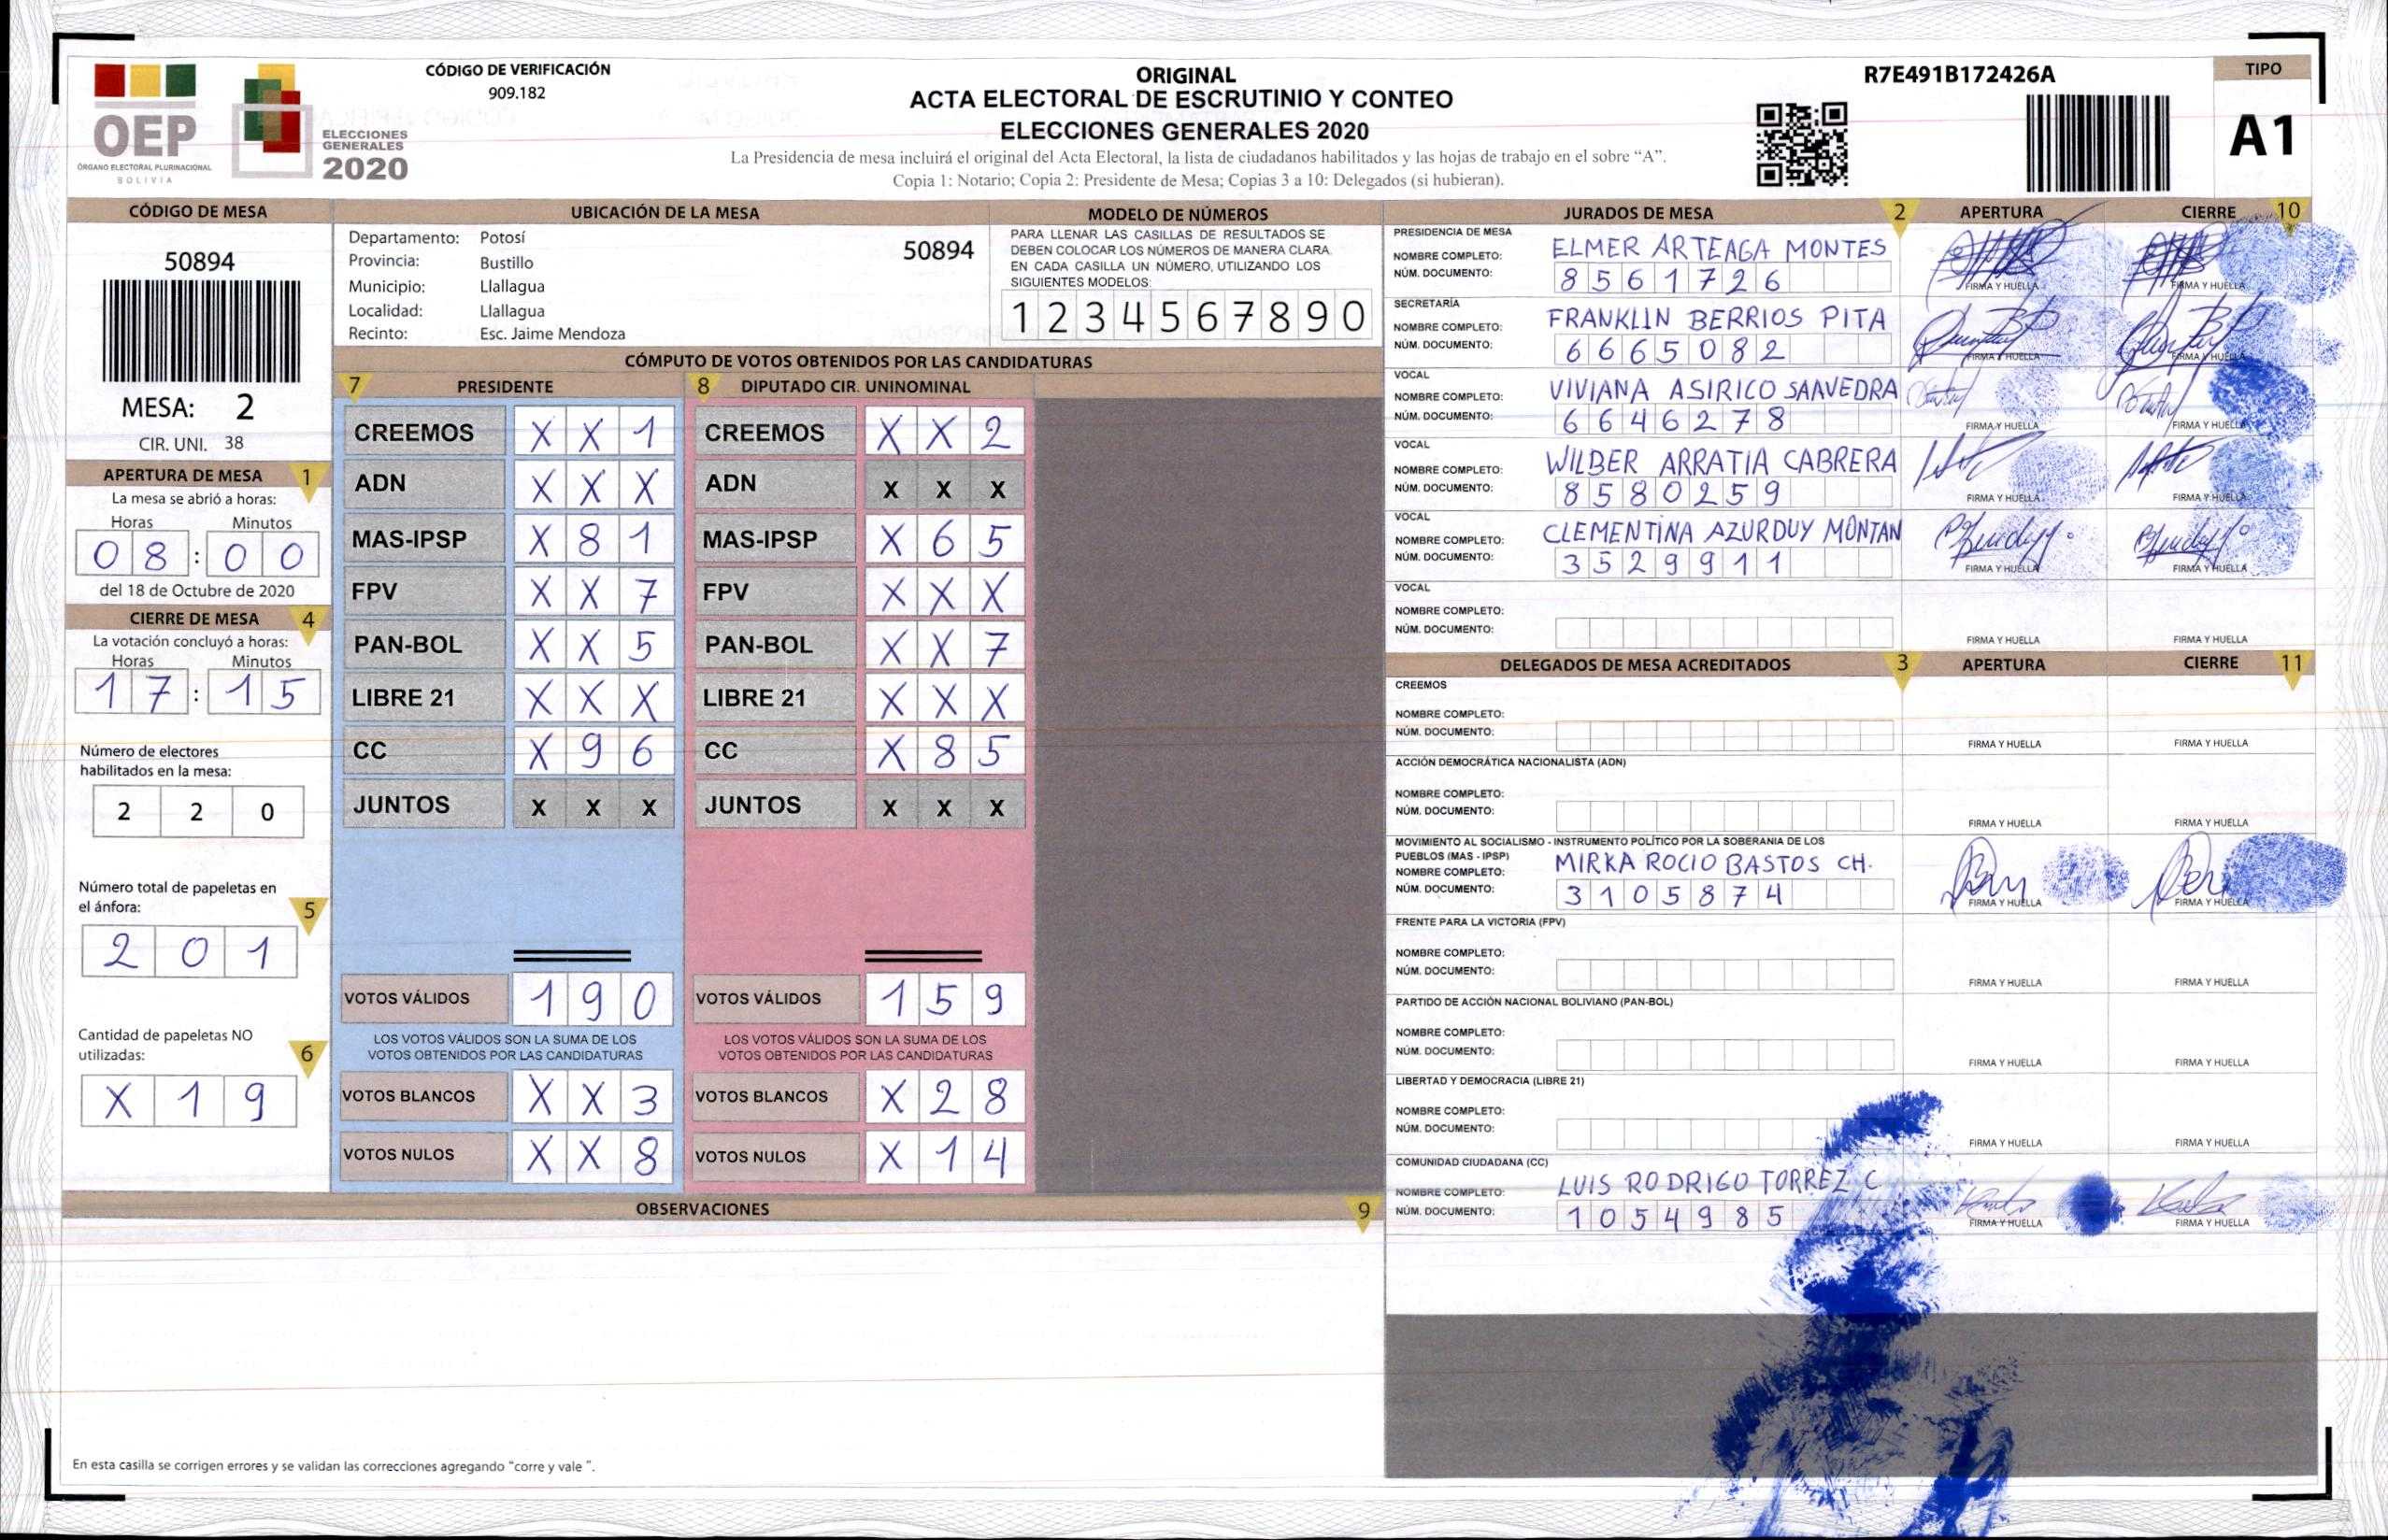 OEP
ÓRGANO ELECTORAL PLURINACIONAL
BOLIVIA
ELECCIONES
GENERALES
2020
CÓDIGO DE VERIFICACIÓN
909.182
ORIGINAL
ACTA ELECTORAL DE ESCRUTINIO Y CONTEO
ELECCIONES GENERALES 2020
La Presidencia de mesa incluirá el original del Acta Electoral, la lista de ciudadanos habilitados y las hojas de trabajo en el sobre “A”.
Copia 1: Notario; Copia 2: Presidente de Mesa; Copias 3 a 10: Delegados (si hubieran).
R7E491B172426A
TIPO
A1
CÓDIGO DE MESA
50894
MESA: 2
CIR. UNI. 38
APERTURA DE MESA 1
La mesa se abrió a horas:
Horas Minutos
08 : 00
del 18 de Octubre de 2020
CIERRE DE MESA 4
La votación concluyó a horas:
Horas Minutos
17 : 15
Número de electores
habilitados en la mesa:
2 2 0
Número total de papeletas en
el ánfora: 5
2 0 1
Cantidad de papeletas NO
utilizadas: 6
X 1 9
UBICACIÓN DE LA MESA
Departamento: Potosí 50894
Provincia: Bustillo
Municipio: Llallagua
Localidad: Llallagua
Recinto: Esc. Jaime Mendoza
MODELO DE NÚMEROS
PARA LLENAR LAS CASILLAS DE RESULTADOS SE
DEBEN COLOCAR LOS NÚMEROS DE MANERA CLARA.
EN CADA CASILLA UN NÚMERO, UTILIZANDO LOS
SIGUIENTES MODELOS:
1 2 3 4 5 6 7 8 9 0
CÓMPUTO DE VOTOS OBTENIDOS POR LAS CANDIDATURAS
7 PRESIDENTE 8 DIPUTADO CIR. UNINOMINAL
CREEMOS X X 1 CREEMOS X X 2
ADN X X X ADN X X X
MAS-IPSP X 8 1 MAS-IPSP X 6 5
FPV X X 7 FPV X X X
PAN-BOL X X 5 PAN-BOL X X 7
LIBRE 21 X X X LIBRE 21 X X X
CC X 9 6 CC X 8 5
JUNTOS X X X JUNTOS X X X
VOTOS VÁLIDOS 1 9 0 VOTOS VÁLIDOS 1 5 9
LOS VOTOS VÁLIDOS SON LA SUMA DE LOS LOS VOTOS VÁLIDOS SON LA SUMA DE LOS
VOTOS OBTENIDOS POR LAS CANDIDATURAS VOTOS OBTENIDOS POR LAS CANDIDATURAS
VOTOS BLANCOS X X 3 VOTOS BLANCOS X 2 8
VOTOS NULOS X X 8 VOTOS NULOS X 1 4
OBSERVACIONES 9
En esta casilla se corrigen errores y se validan las correcciones agregando “corre y vale ”.
JURADOS DE MESA 2 APERTURA CIERRE 10
PRESIDENCIA DE MESA
NOMBRE COMPLETO: ELMER ARTEAGA MONTES
NÚM. DOCUMENTO: 8561726
FIRMA Y HUELLA FIRMA Y HUELLA
SECRETARÍA
NOMBRE COMPLETO: FRANKLIN BERRIOS PITA
NÚM. DOCUMENTO: 6665082
FIRMA Y HUELLA FIRMA Y HUELLA
VOCAL
NOMBRE COMPLETO: VIVIANA ASIRICO SAAVEDRA
NÚM. DOCUMENTO: 6646278
FIRMA Y HUELLA FIRMA Y HUELLA
VOCAL
NOMBRE COMPLETO: WILBER ARRATIA CABRERA
NÚM. DOCUMENTO: 8580259
FIRMA Y HUELLA FIRMA Y HUELLA
VOCAL
NOMBRE COMPLETO: CLEMENTINA AZURDUY MONTAN
NÚM. DOCUMENTO: 3529911
FIRMA Y HUELLA FIRMA Y HUELLA
VOCAL
NOMBRE COMPLETO:
NÚM. DOCUMENTO:
FIRMA Y HUELLA FIRMA Y HUELLA
DELEGADOS DE MESA ACREDITADOS 3 APERTURA CIERRE 11
CREEMOS
NOMBRE COMPLETO:
NÚM. DOCUMENTO:
FIRMA Y HUELLA FIRMA Y HUELLA
ACCIÓN DEMOCRÁTICA NACIONALISTA (ADN)
NOMBRE COMPLETO:
NÚM. DOCUMENTO:
FIRMA Y HUELLA FIRMA Y HUELLA
MOVIMIENTO AL SOCIALISMO - INSTRUMENTO POLÍTICO POR LA SOBERANIA DE LOS
PUEBLOS (MAS - IPSP)
NOMBRE COMPLETO: MIRKA ROCIO BASTOS CH.
NÚM. DOCUMENTO: 3105874
FIRMA Y HUELLA FIRMA Y HUELLA
FRENTE PARA LA VICTORIA (FPV)
NOMBRE COMPLETO:
NÚM. DOCUMENTO:
FIRMA Y HUELLA FIRMA Y HUELLA
PARTIDO DE ACCIÓN NACIONAL BOLIVIANO (PAN-BOL)
NOMBRE COMPLETO:
NÚM. DOCUMENTO:
FIRMA Y HUELLA FIRMA Y HUELLA
LIBERTAD Y DEMOCRACIA (LIBRE 21)
NOMBRE COMPLETO:
NÚM. DOCUMENTO:
FIRMA Y HUELLA FIRMA Y HUELLA
COMUNIDAD CIUDADANA (CC)
NOMBRE COMPLETO: LUIS RODRIGO TORREZ C
NÚM. DOCUMENTO: 1054985
FIRMA Y HUELLA FIRMA Y HUELLA